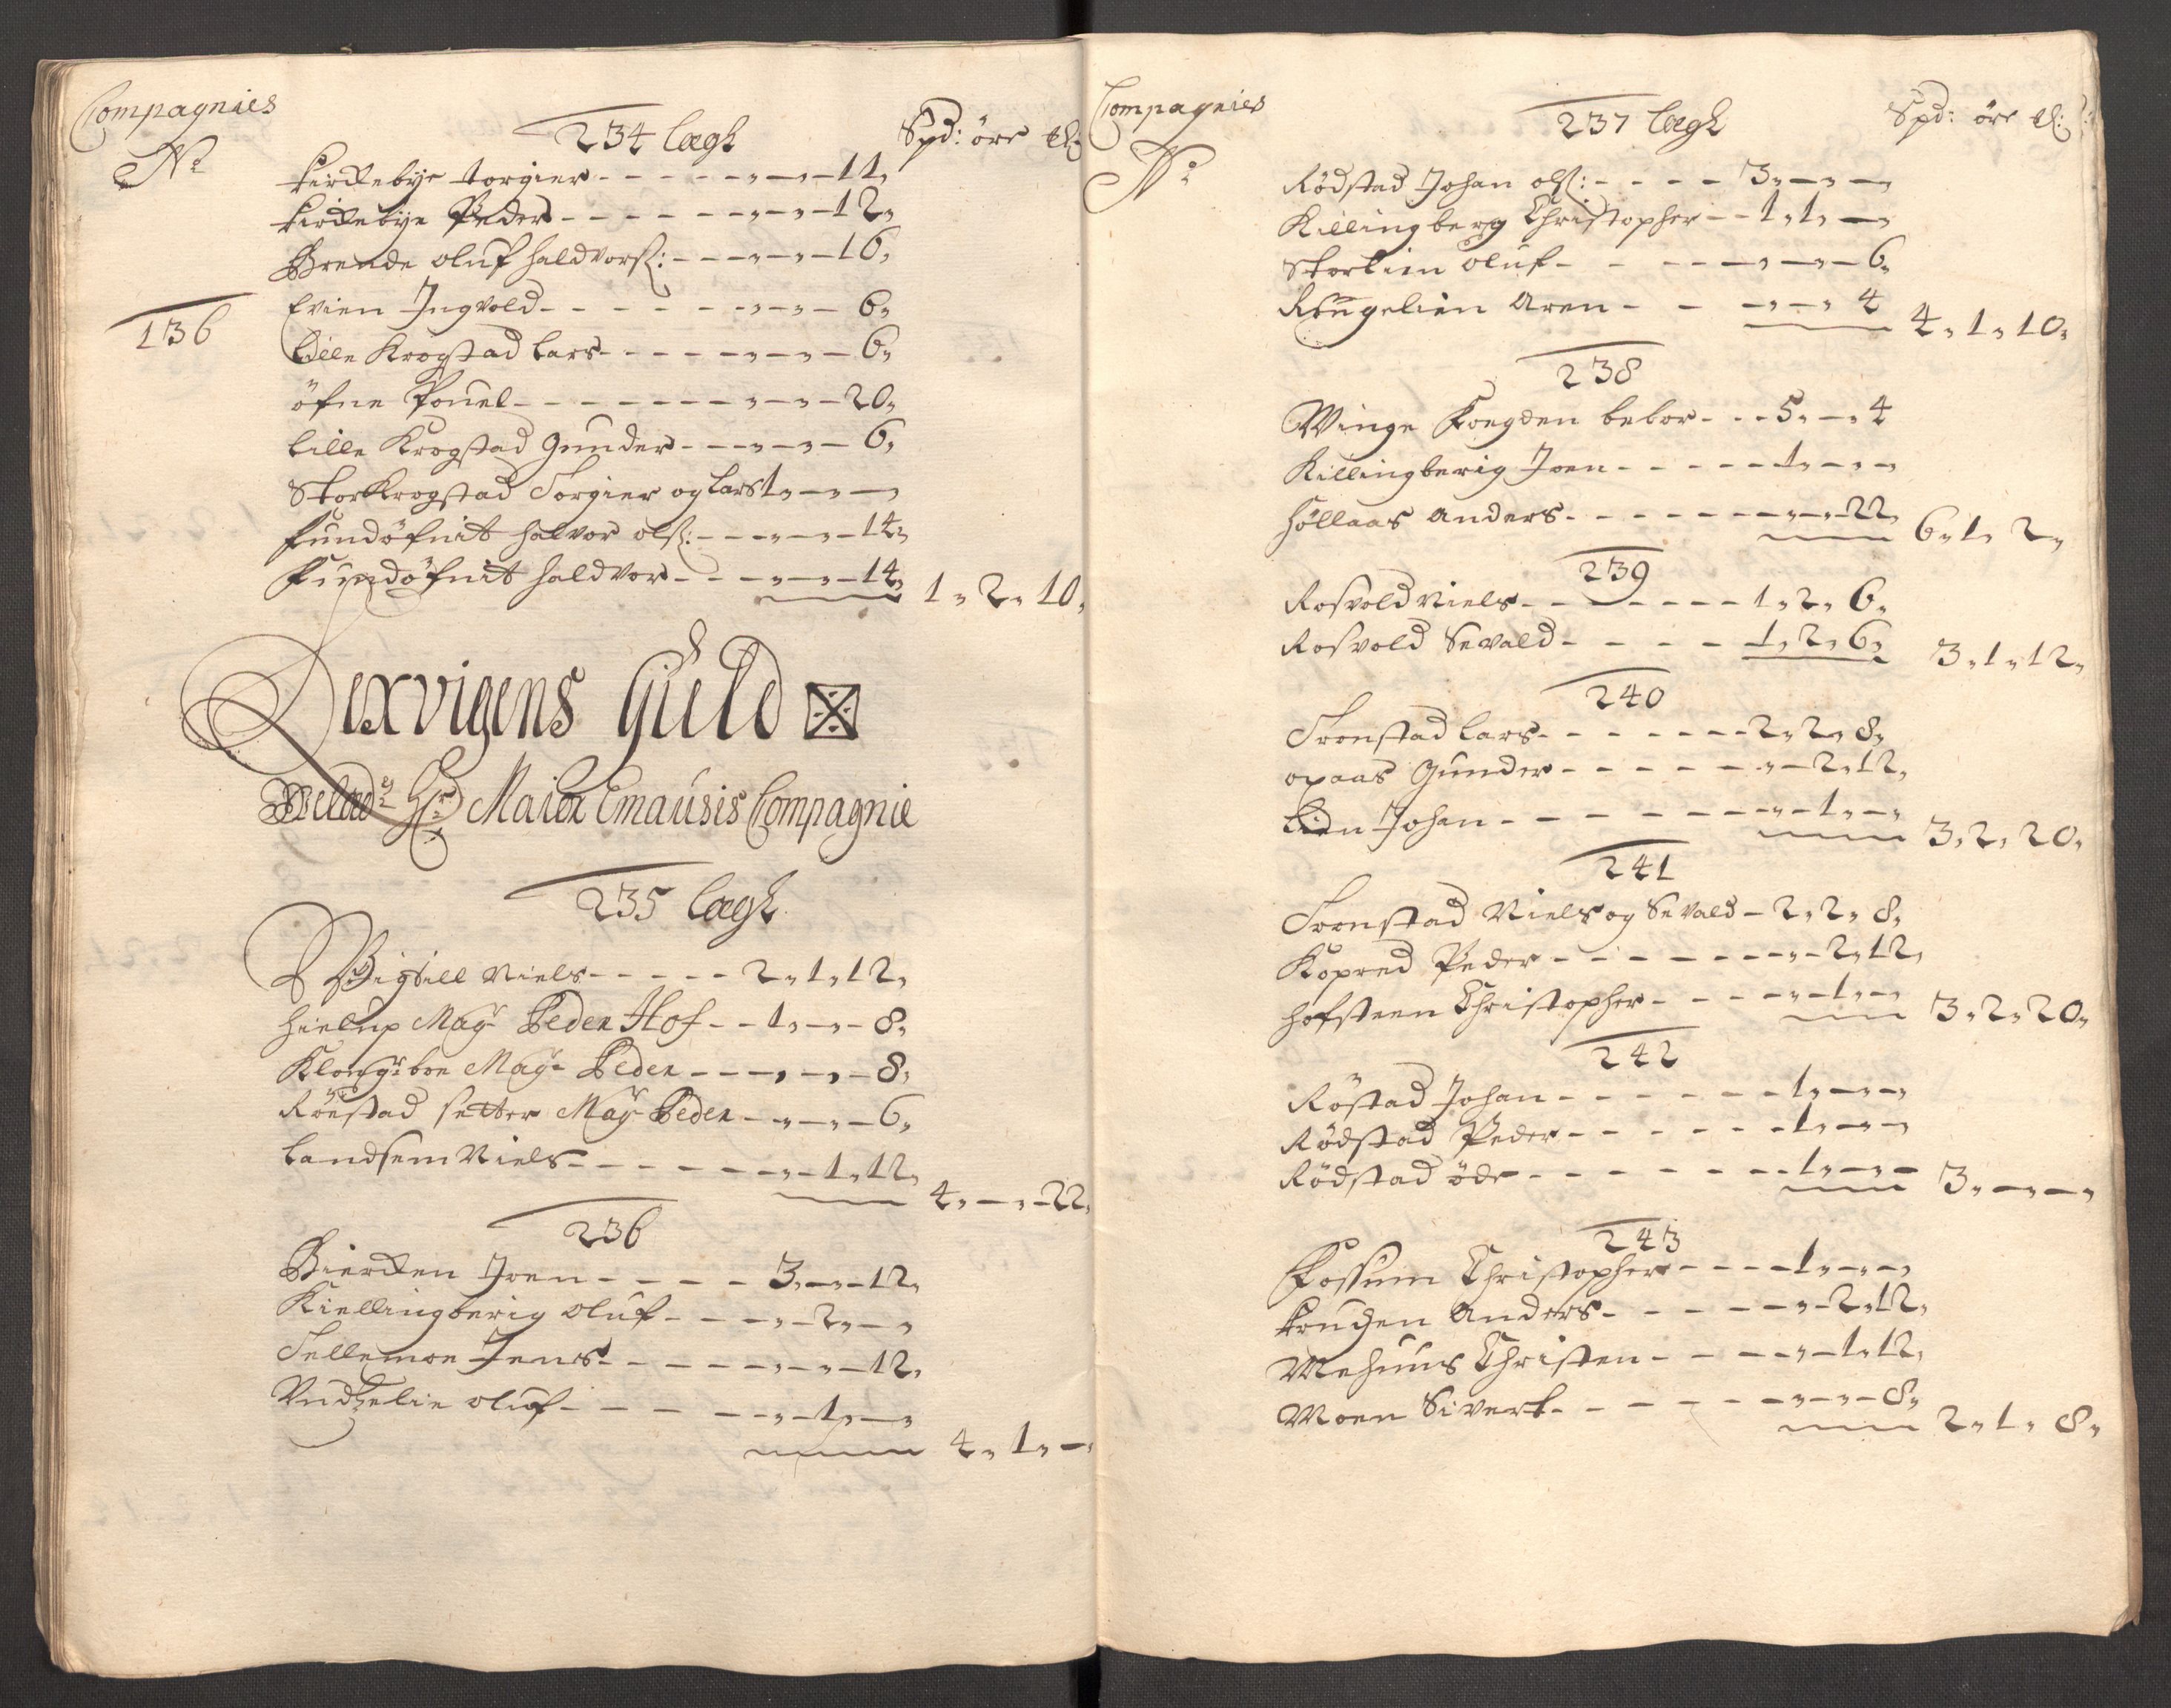 Compagnies
No
234 lægh
Spd: öre
Kirckebye torgier - - - - - „ - „ - 11„
Kirckebye Peder - - - - - „ - „ - 12„
Brende oluf haldvors: - - - „ - „ - 16„
136
Evien Ingvold - - - - - „ - „ - 6„
Lille Krogstad Lars - - - - „ - „ - 6„
öfne Pouel - - - - - - „ - „ - 20„
Lille Krogstad Gunder - - - „ - „ - 6„
Stor Krogstad Torgier og Lars 1„ - „ -
Sundöfnit halvor ols: - - - „ - „ - 14„
Sundöfnit haldvor - - - „ - „ - 14„
1„ 2„ 10„
Dexvigens Guld
Velæd: Hr Maior Emausis Compagnie
235 lægh
Bigtill Niels - - - - - 2„ 1„ 12„
hielup May Peder Hof - - 1„ - „ - 8„
Klongsboe May Peder - - - „ - „ - 8„
Röestad setter May Peder - „ - „ - 6„
Landsem Niels - - - - - - „ - 1„ 12„
4„ - „ - 22„
236
Biercken Joen - - - - - 3„ - „ - 12„
Kiellingberig oluf - - - „ - 2„ - „
Tellemoe Jens - - - - - „ - „ - 12„
Vudtzelie oluf - - - - - „ - 1„ - „
4„ 1„ -
Compagnies
No
237 lægh
Spd: öre
Rödstad Johan ols: - - - - 3„ - „ -
Killingberg Christopher - - 1„ 1„ -
Storlien oluf - - - - - „ - „ - 6„
Rungelien Aren - - - „ - „ 4
4„ 1„ 10„
238
Winge Foegden bebor - - - 5„ - „ 4
Killingberig Joen - - - - - 1„ - „ -
höllaas Anders - - - - - - „ - „ 22„
6„ 1„ 2„
239
Rosvold Niels - - - - - - 1„ 2„ 6„
Rosvold Sevald - - - - - 1„ 2„ 6„
3„ 1„ 12„
240
Tronstad Lars - - - - - - 2„ 2„ 8„
opaas Gunder - - - - - - „ - 2„ 12„
Lien Johan - - - - - - „ - 1„ - „
3„ 2„ 20„
241
Tronstad Niels og Sevald - 2„ 2„ 8„
Kopred Peder - - - - - - „ - 2„ 12„
hofsteen Christopher - - - - „ - 1„ - „
3„ 2„ 20„
242
Röstad Johan - - - - - - 1„ - „ - „
Rödstad Peder - - - - - - 1„ - „ - „
Rödstad öde - - - - - - 1„ - „ -
3„ - „ - „
243
Fossum Christopher - - - - 1„ - „ - „
Anders - - - - - „ - 2„ 12„
Mehuus Christen - - - - „ - 1„ 12„
Moen Sivert - - - - - - „ - „ - 8„
2„ 1„ 8„